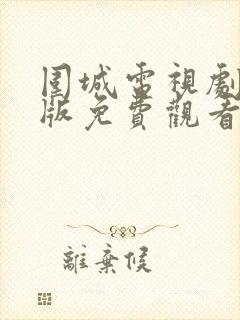 圍城電視劇
版免費觀看
離棄侯